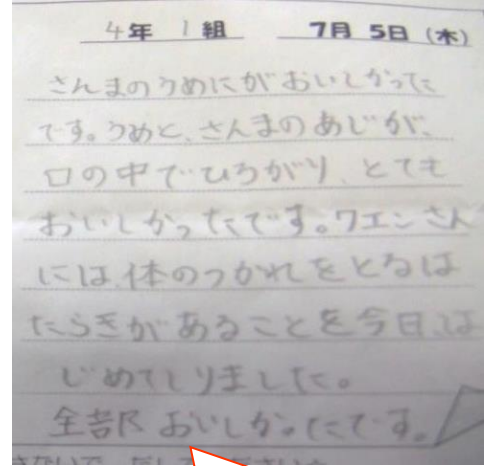 4年 1組 7月 5日 (木)
さんまのうめにがおいしかった
です。うめと、さんまのあじが、
口の中でひろがり、とても
おいしかったです。クエンさん
には、体のつかれをとるは
たらきがあることを今日、は
じめてしりました。
全部 おいしかったです。